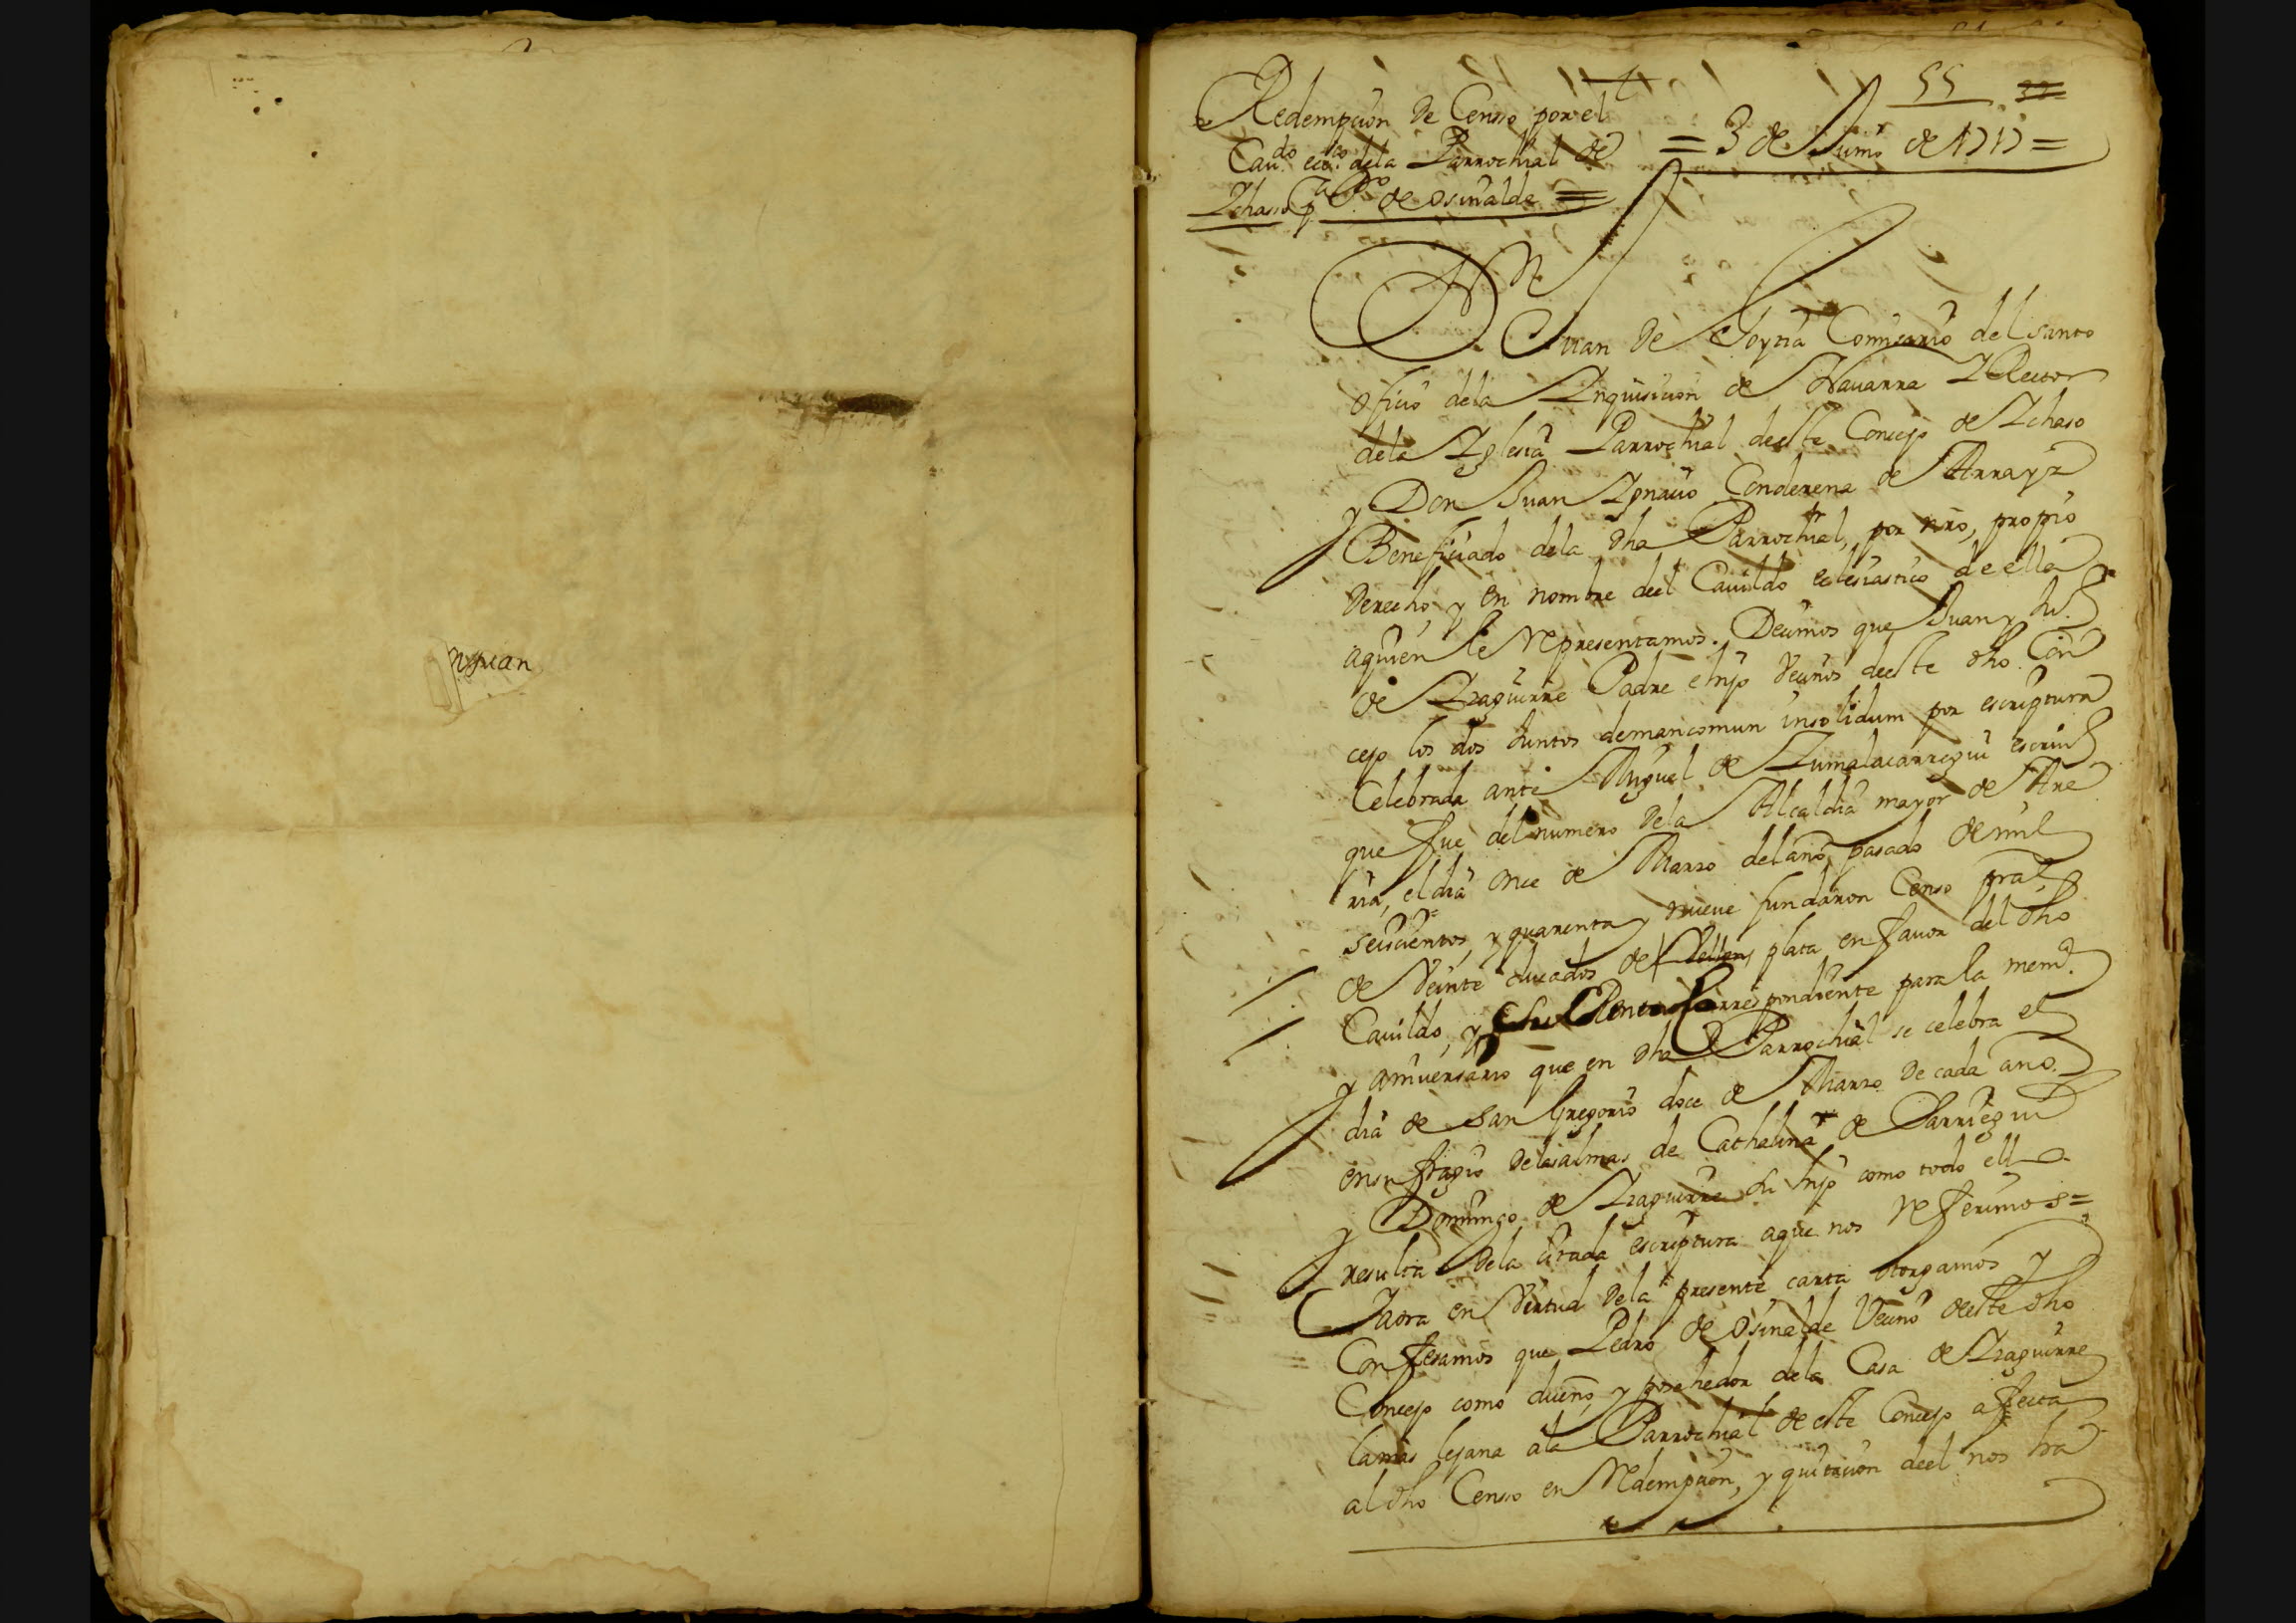 nJuan
55
Redempcion de Censso por el
Cau.do ecc.co de la Parrochial de = 3 de Junio de 1717 =
Ychasso p.a P.o de Osinalde =
D. Juan de Comisario del santo
oficio dela Ynquisicion de Nauarra Y Rector
dela Yglesia Parrochial deeste Concejo de Ychaso
y Don Juan Ygnacio Conderena de Arrayz
Beneficiado dela dha Parrochial, por nro, propio
derecho, y en nombre deel Cauildo eclesiastico de ella
aquien le Representamos. Decimos que Juan y
de Yzaguirre Padre e hijo vecinos deeste dho Con
cejo los dos Juntos demancomun insolidum por escriptura
Celebrada ante Miguel de Zumalacarregui escriu
que fue del numero dela Alcaldia mayor de Are
ria, el dia once de Marzo del año pasado de mil
seiscientos, y quarenta y nueve fundaron Censo pral
de Veinte ducados de plata en fauor del dho
Cauildo, y su Renta Correspondiente para la mem.a
y aniuersario que en dha Parrochial se celebra el
dia de San Gregorio doce de Marzo de cada año.
ensufragio delasalmas de Cathalina de Sarriegui
y Domingo de Yzaguirre su hijo como todo ello
resulta dela citada escriptura aque nos Referimos =
Yaora en Virtud dela presente carta otorgamos y
Confesamos que Pedro de Osinalde Vecino deeste dho
Concejo como dueño, y posehedor dela Casa de Yzaguirre
lamas lejana ala Parrochial de este Concejo afecta
al dho Censo en Redempcion, y quitacion deel nos ha